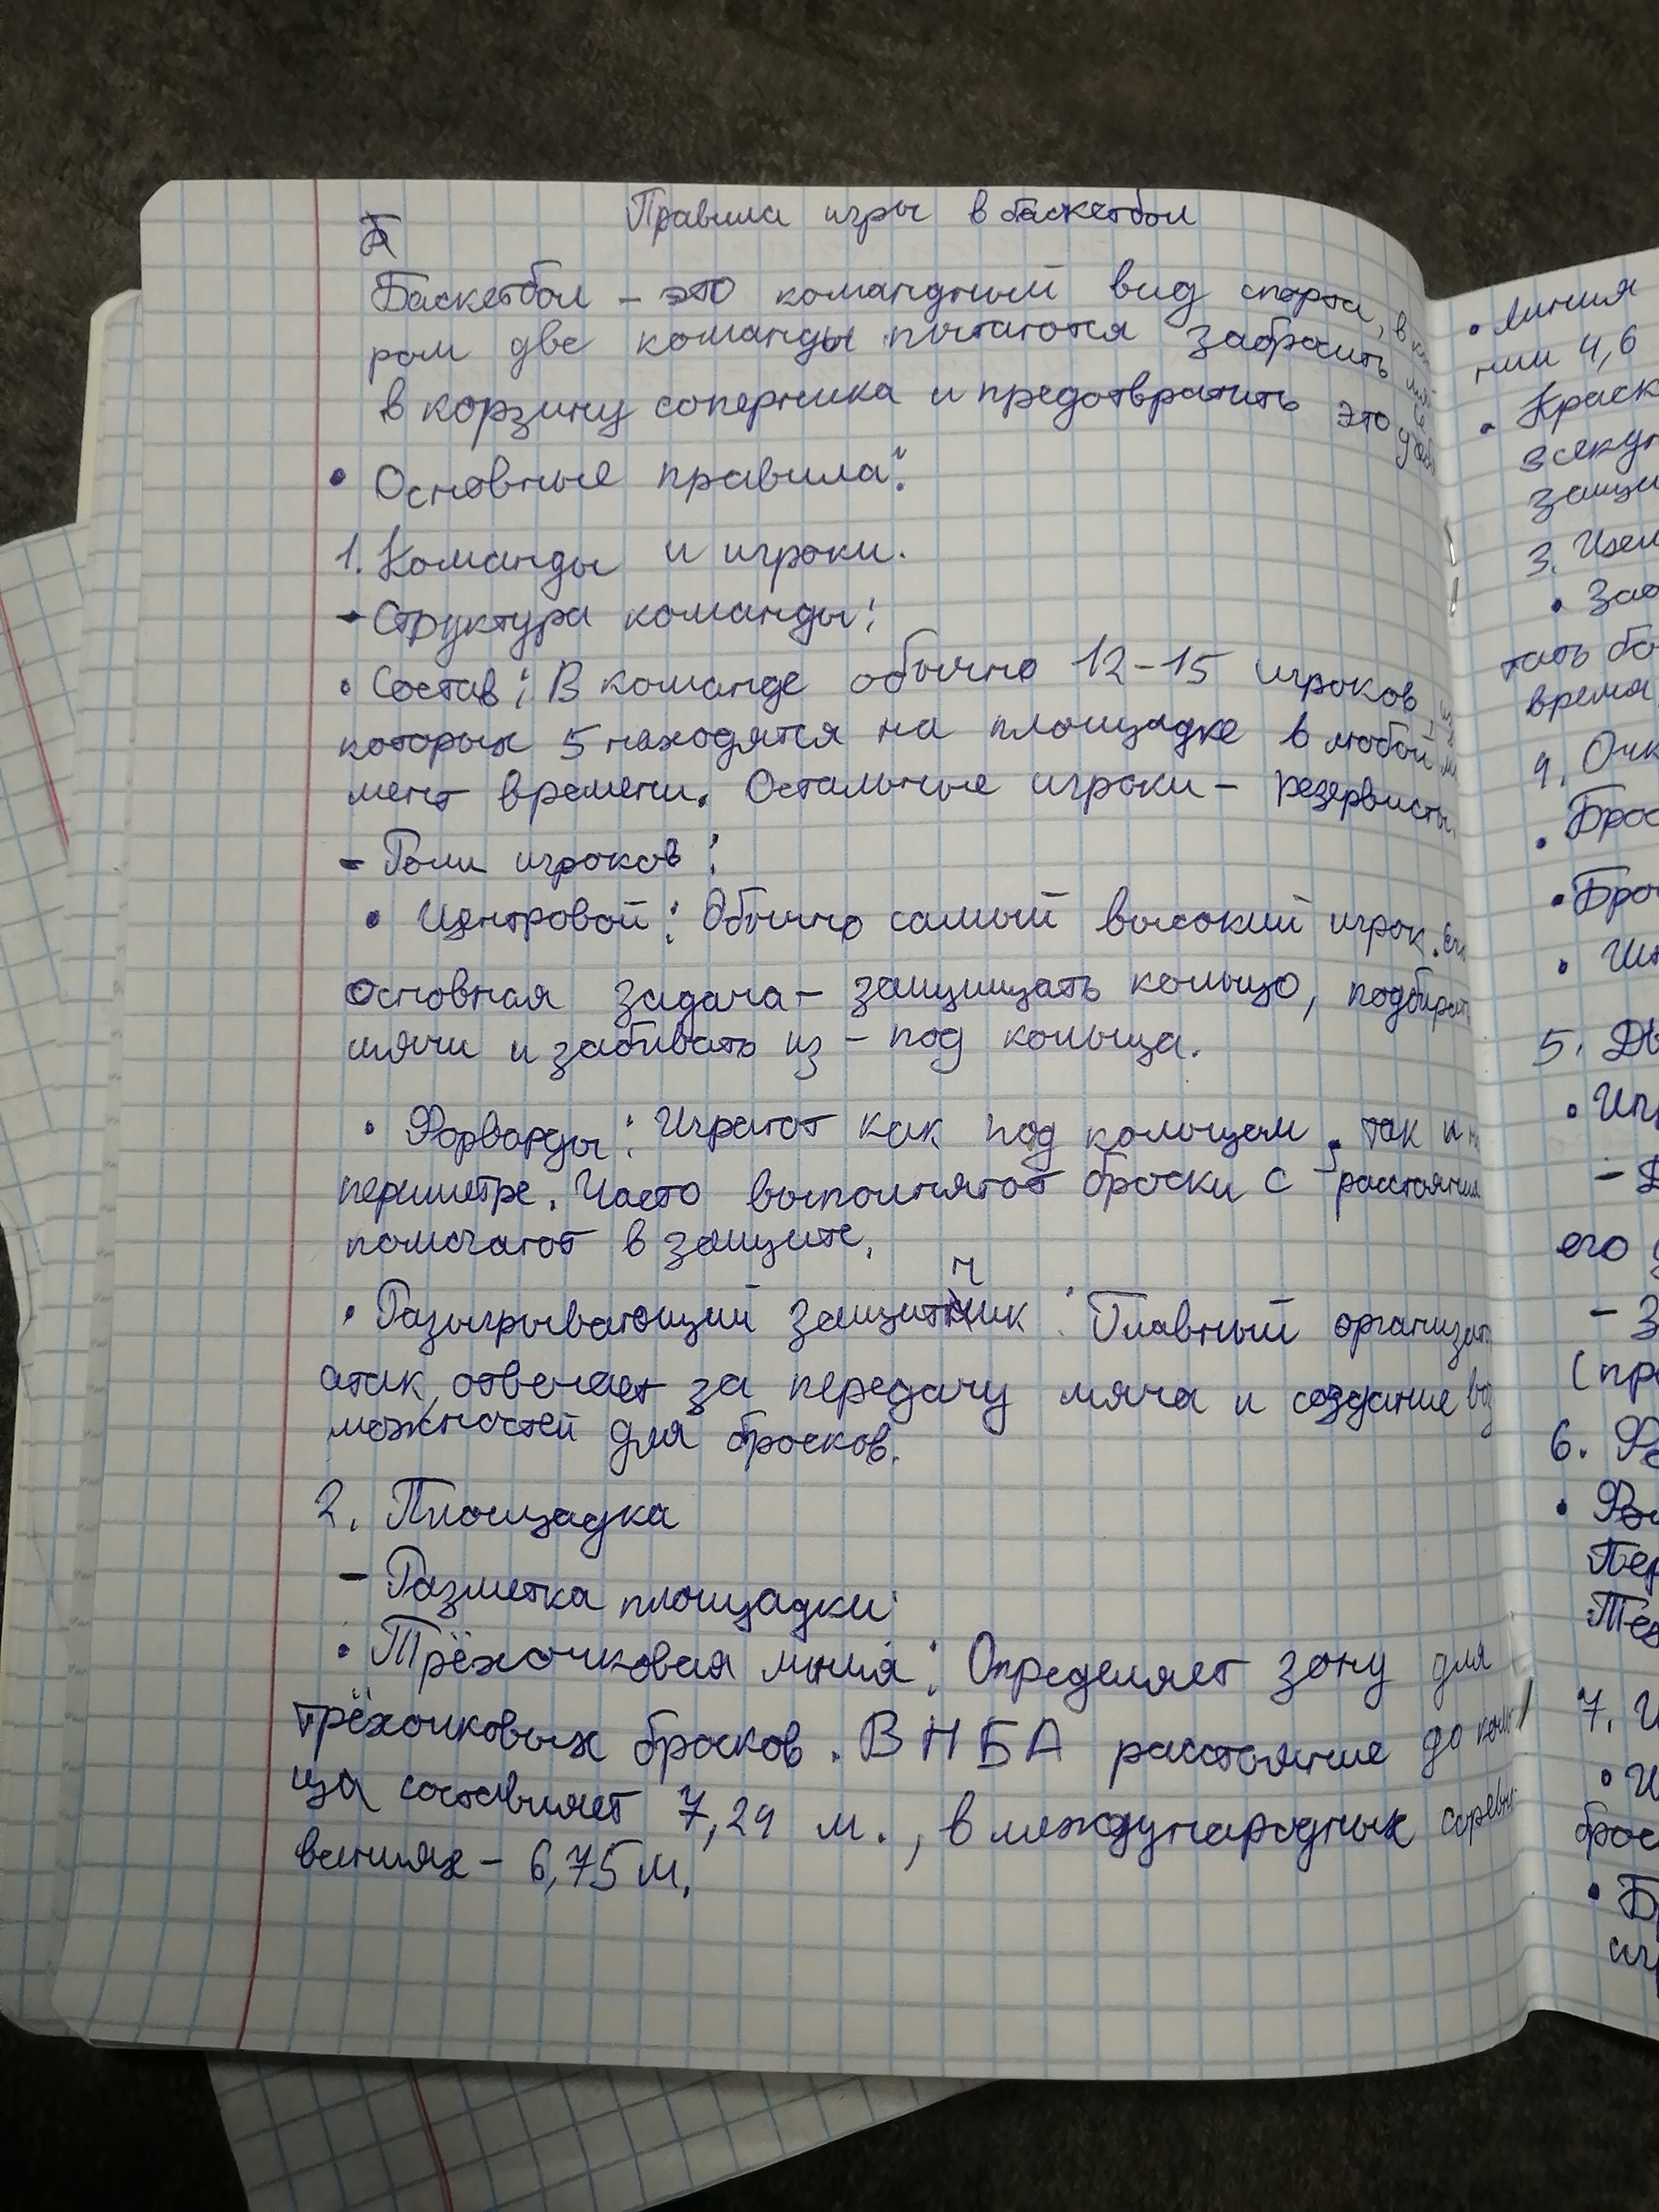 Правила игры в баскетбол
Баскетбол – это командный вид спорта, в
ром две команды пытаются забросить мяч
в корзину соперника и предотвратить это
• Основные правила:
1. Команды и игроки.
– Структура команды:
• Состав: В команде обычно 12–15 игроков, из
которых 5 находятся на площадке в любой мо
мент времени. Остальные игроки – резервисты.
– Роли игроков:
• Центровой: Обычно самый высокий игрок. Его
основная задача – защищать кольцо, подбирать
мячи и забивать из-под кольца.
• Форварды: Играют как под кольцом, так и на
периметре. Часто выполняют броски с расстояния
помогают в защите.
• Разыгрывающий защитник: Главный организат
атак, отвечает за передачу мяча и создание воз
можностей для бросков.
2. Площадка
– Разметка площадки:
• Трёхочковая линия: Определяет зону для
трёхочковых бросков. В НБА расстояние до коль
ца составляет 7,24 м., в международных соревно
ваниях – 6,75 м.
• линия
нии 4,6
• Краск
3секун
защи
3.
• Заб
тать бо
время
4. Очк
• Брос
• Бро
• Шт
5.
• Игр
–
его
– З
(пр
6.
•
Пер
Тех
7. И
• И
брос
• Б
иг